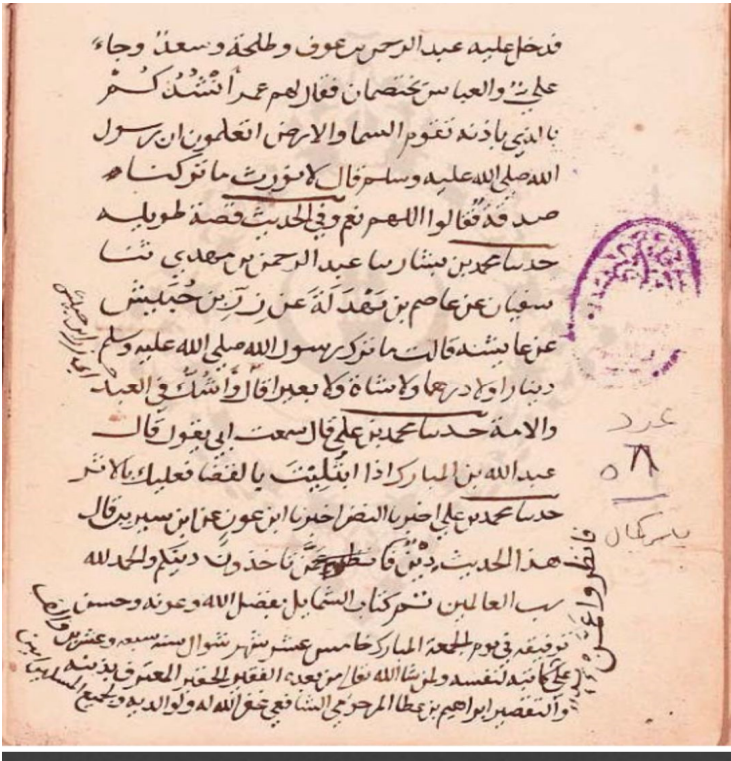 فدخل عليه عبد الرحمن بن عوف وطلحة وسعد وجاء
علي والعباس يختصمان فقال لهم عمر أنشدكم
بالذي باذنه تقوم السما والارض اتعلمون ان رسول
الله صلي الله عليه وسلم قال لا نورث ما تركناه
صدقة فقالوا اللهم نعم وفي الحديث قصة طويله
حدثنا محمد بن بشار ثنا عبد الرحمن بن مهدي ثنا
سفيان عن عاصم بن بهدلة عن زر بن حبيش
عن عايشة قالت ما ترك رسول الله صلي الله عليه وسلم
دينارا ولا درهما ولا شاة ولا بعيرا قال وأشك في العبد
والامة حدثنا محمد بن علي قال سمعت ابي يقول قال
عبد الله بن المبارك اذا ابتليت بالقضا فعليك بالاثر
حدثنا محمد بن علي اخبرنا النضر اخبرنا ابن عون عن ابن سيرين قال
هذا الحديث دين تاخذون دينكم والحمد لله
رب العالمين تم كتاب الشمايل بفضل الله وعونه وحسن
توفيقه في يوم الجمعة المبارك خامس عشر شهر شوال سنه سبعه وعشرين والف
علي كاتبه لنفسه ولمن شا الله تعالي من بعده الفقير الحقير المعترف بذنبه
والتقصير ابراهيم بن عطا المرحومي الشافعي غفر الله له ولوالديه ولجميع المسلمين
فانظروا عمن
عدد
٥٨